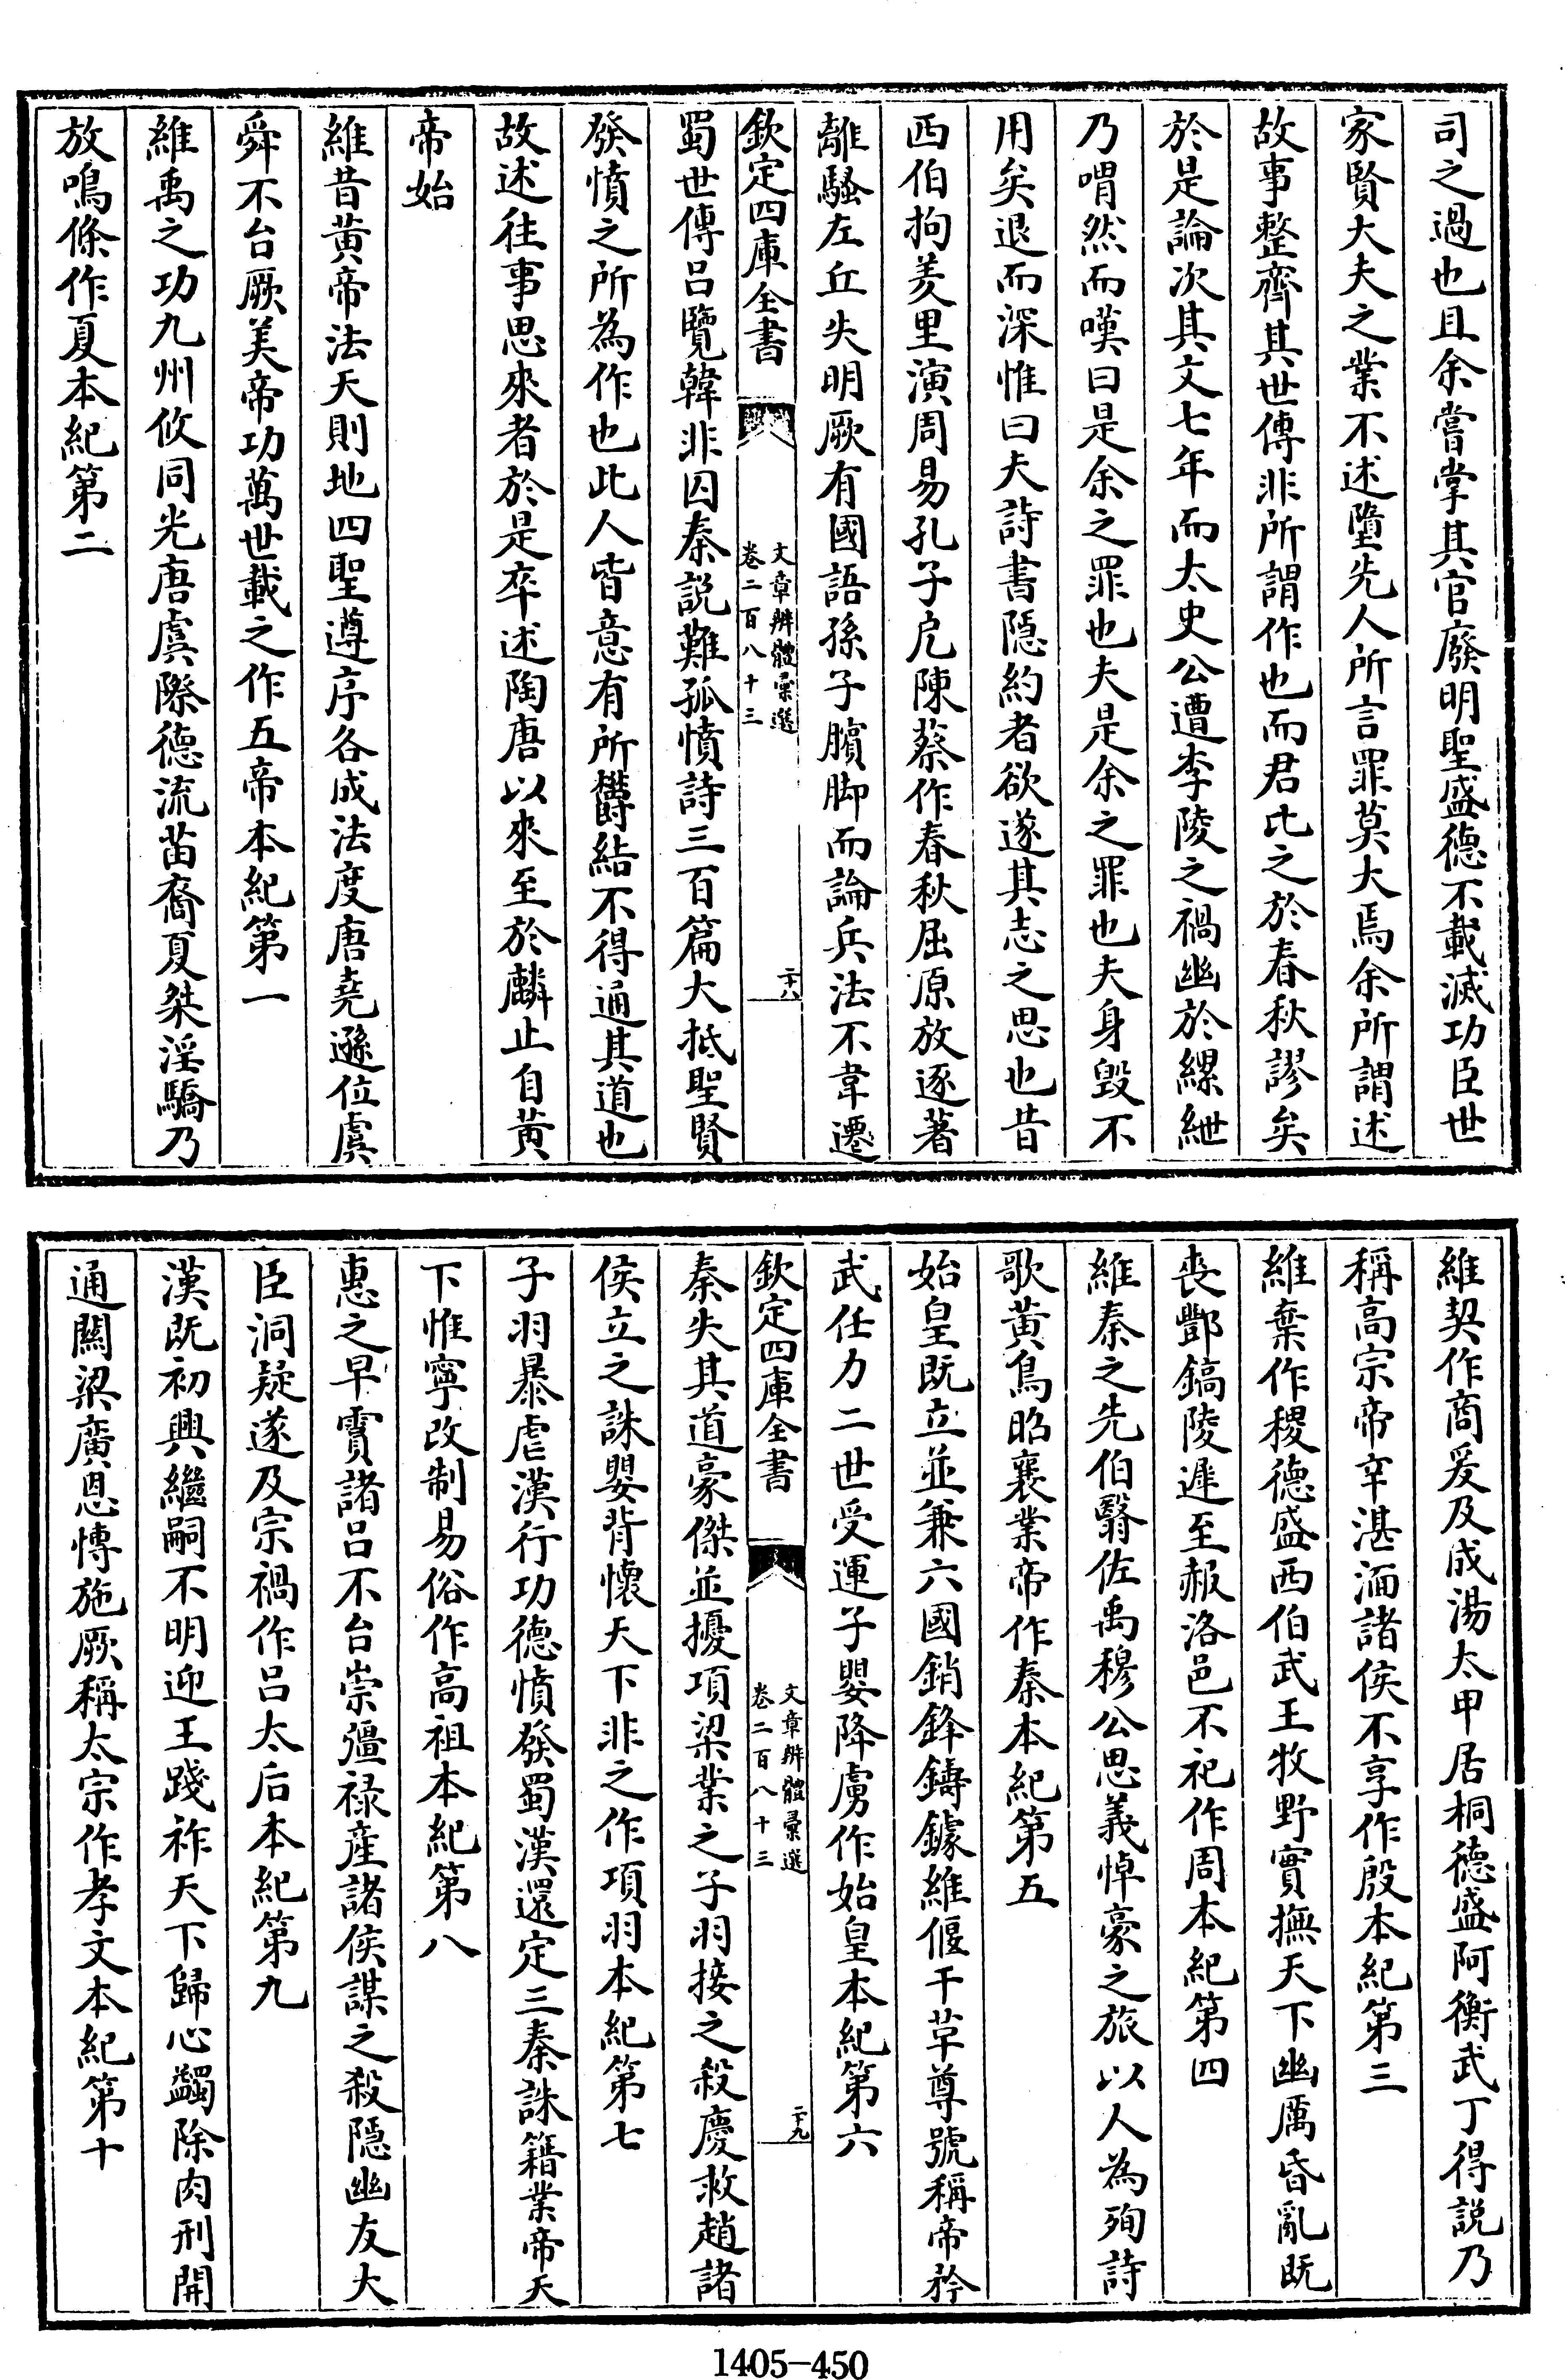 司之過也且余嘗掌其官廢明聖盛德不載滅功臣世
家賢大夫之業不述墮先人所言罪莫大焉余所謂述
故事整齊其世傳非所謂作也而君比之於春秋謬矣
於是論次其文七年而太史公遭李陵之禍幽於縲紲
乃喟然而嘆曰是余之罪也夫是余之罪也夫身毀不
用矣退而深惟曰夫詩書隱約者欲遂其志之思也昔
西伯拘羑里演周易孔子戹陳蔡作春秋屈原放逐著
離騷左丘失明厥有國語孫子臏脚而論兵法不韋遷
欽定四庫全書
文章辨體彚選
卷二百八十三
二十八
蜀世傳呂覽韓非囚秦說難孤憤詩三百篇大抵聖賢
發憤之所為作也此人皆意有所鬱結不得通其道也
故述往事思來者於是卒述陶唐以來至於麟止自黃
帝始
維昔黃帝法天則地四聖遵序各成法度唐堯遜位虞
舜不台厥美帝功萬世載之作五帝本紀第一
維禹之功九州攸同光唐虞際德流苗裔夏桀淫驕乃
放鳴條作夏本紀第二
維契作商爰及成湯太甲居桐德盛阿衡武丁得說乃
稱高宗帝辛湛湎諸侯不享作殷本紀第三
維棄作稷德盛西伯武王牧野實撫天下幽厲昏亂既
喪酆鎬陵遲至赧洛邑不祀作周本紀第四
維秦之先伯翳佐禹穆公思義悼豪之旅以人為殉詩
歌黃鳥昭襄業帝作秦本紀第五
始皇既立並兼六國銷鋒鑄鐻維偃干革尊號稱帝矜
武任力二世受運子嬰降虜作始皇本紀第六
欽定四庫全書
文章辨體彚選
卷二百八十三
二十九
秦失其道豪傑並擾項梁業之子羽接之殺慶救趙諸
侯立之誅嬰背懷天下非之作項羽本紀第七
子羽暴虐漢行功德憤發蜀漢還定三秦誅籍業帝天
下惟寧改制易俗作高祖本紀第八
惠之早霣諸呂不台崇彊祿產諸侯謀之殺隱幽友大
臣洞疑遂及宗禍作呂太后本紀第九
漢既初興繼嗣不明迎王踐祚天下歸心蠲除肉刑開
通關梁廣恩博施厥稱太宗作孝文本紀第十
1405-450